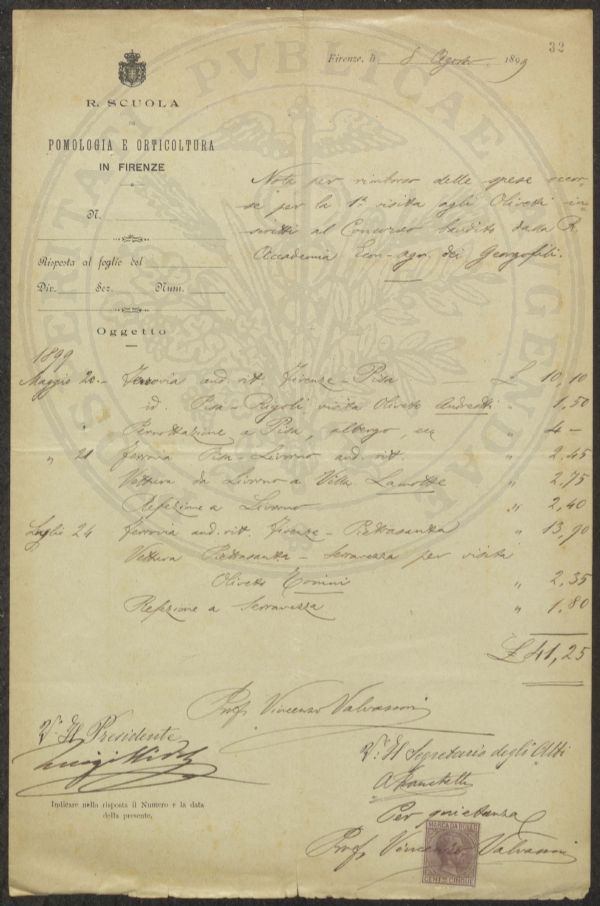 32
Firenze, li 8 Agosto 1899
R. SCUOLA
DI
POMOLOGIA E ORTICOLTURA
IN FIRENZE
N.
Risposta al foglio del
Div. Sez. Num.
Oggetto
Nota per rimborso delle spese occor-
se per la 1ª visita agli Oliveti in-
scritti al Concorso bandito dalla R.
Accademia Econ-agr. dei Georgofili.
1899
Maggio 20 - Ferrovia and. rit. Firenze - Pisa £ 10,10
id. Pisa - Rigoli visita Oliveto Andreotti " 1,50
" Pernottazione a Pisa, albergo, ecc " 4 -
" 21 Ferrovia Pisa - Livorno and. rit. " 2,45
Vettura da Livorno a Villa " 2,75
Refezione a Livorno " 2,40
Luglio 24 Ferrovia and. rit. Firenze - Pietrasanta " 13,90
Vettura Pietrasanta - Seravezza per visita
Oliveto " 2,35
Refezione a Seravezza " 1,80
£ 41,25
Prof. Vincenzo Valvassori
V.° Il Presidente
Luigi
V.° Il Segretario degli Atti
Per quietanza
Prof. Vincenzo Valvassori
MARCA DA BOLLO
CENT. CINQUE
Indicare nella risposta il Numero e la data
della presente.
PUBLICAE
AUGENDAE